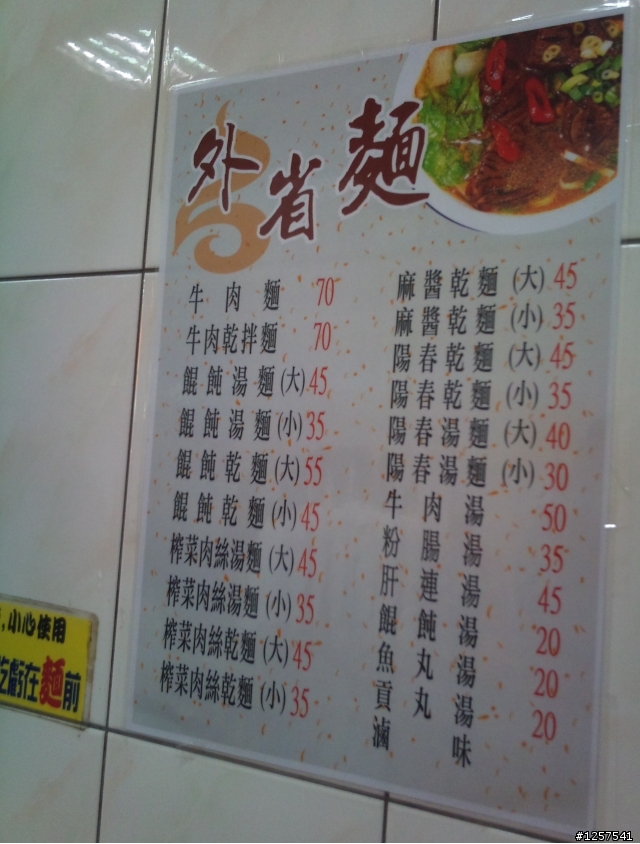 外省麵
牛肉麵 70
牛肉乾拌麵 70
餛飩湯麵(大)45
餛飩湯麵(小)35
餛飩乾麵(大)55
餛飩乾麵(小)45
榨菜肉絲湯麵(大)45
榨菜肉絲湯麵(小)35
榨菜肉絲乾麵(大)45
榨菜肉絲乾麵(小)35
麻醬乾麵(大)45
麻醬乾麵(小)35
陽春乾麵(大)45
陽春乾麵(小)35
陽春湯麵(大)40
陽春湯麵(小)30
牛肉湯 50
粉腸湯 35
肝連湯 45
餛飩湯 20
魚丸湯 20
貢丸湯 20
滷味
,小心使用
吃虧在麵前
#1257541